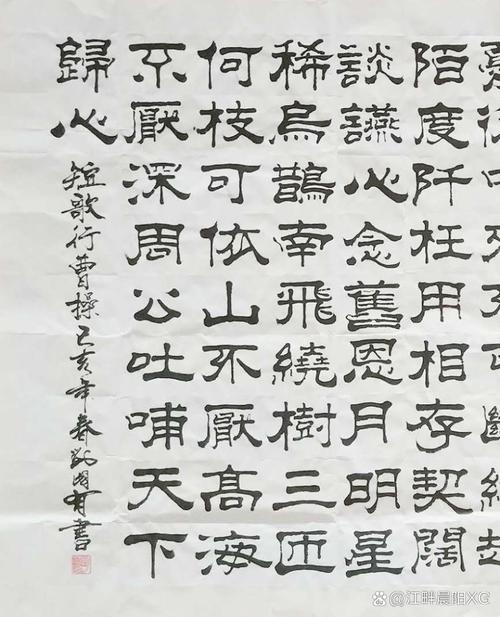 陌度阡枉用相存契闊
談讌心念舊恩月明星
稀烏鵲南飛繞樹三匝
何枝可依山不厭高海
不厭深周公吐哺天下
歸心
短歌行曹操己亥年春書
江畔晨阳XG